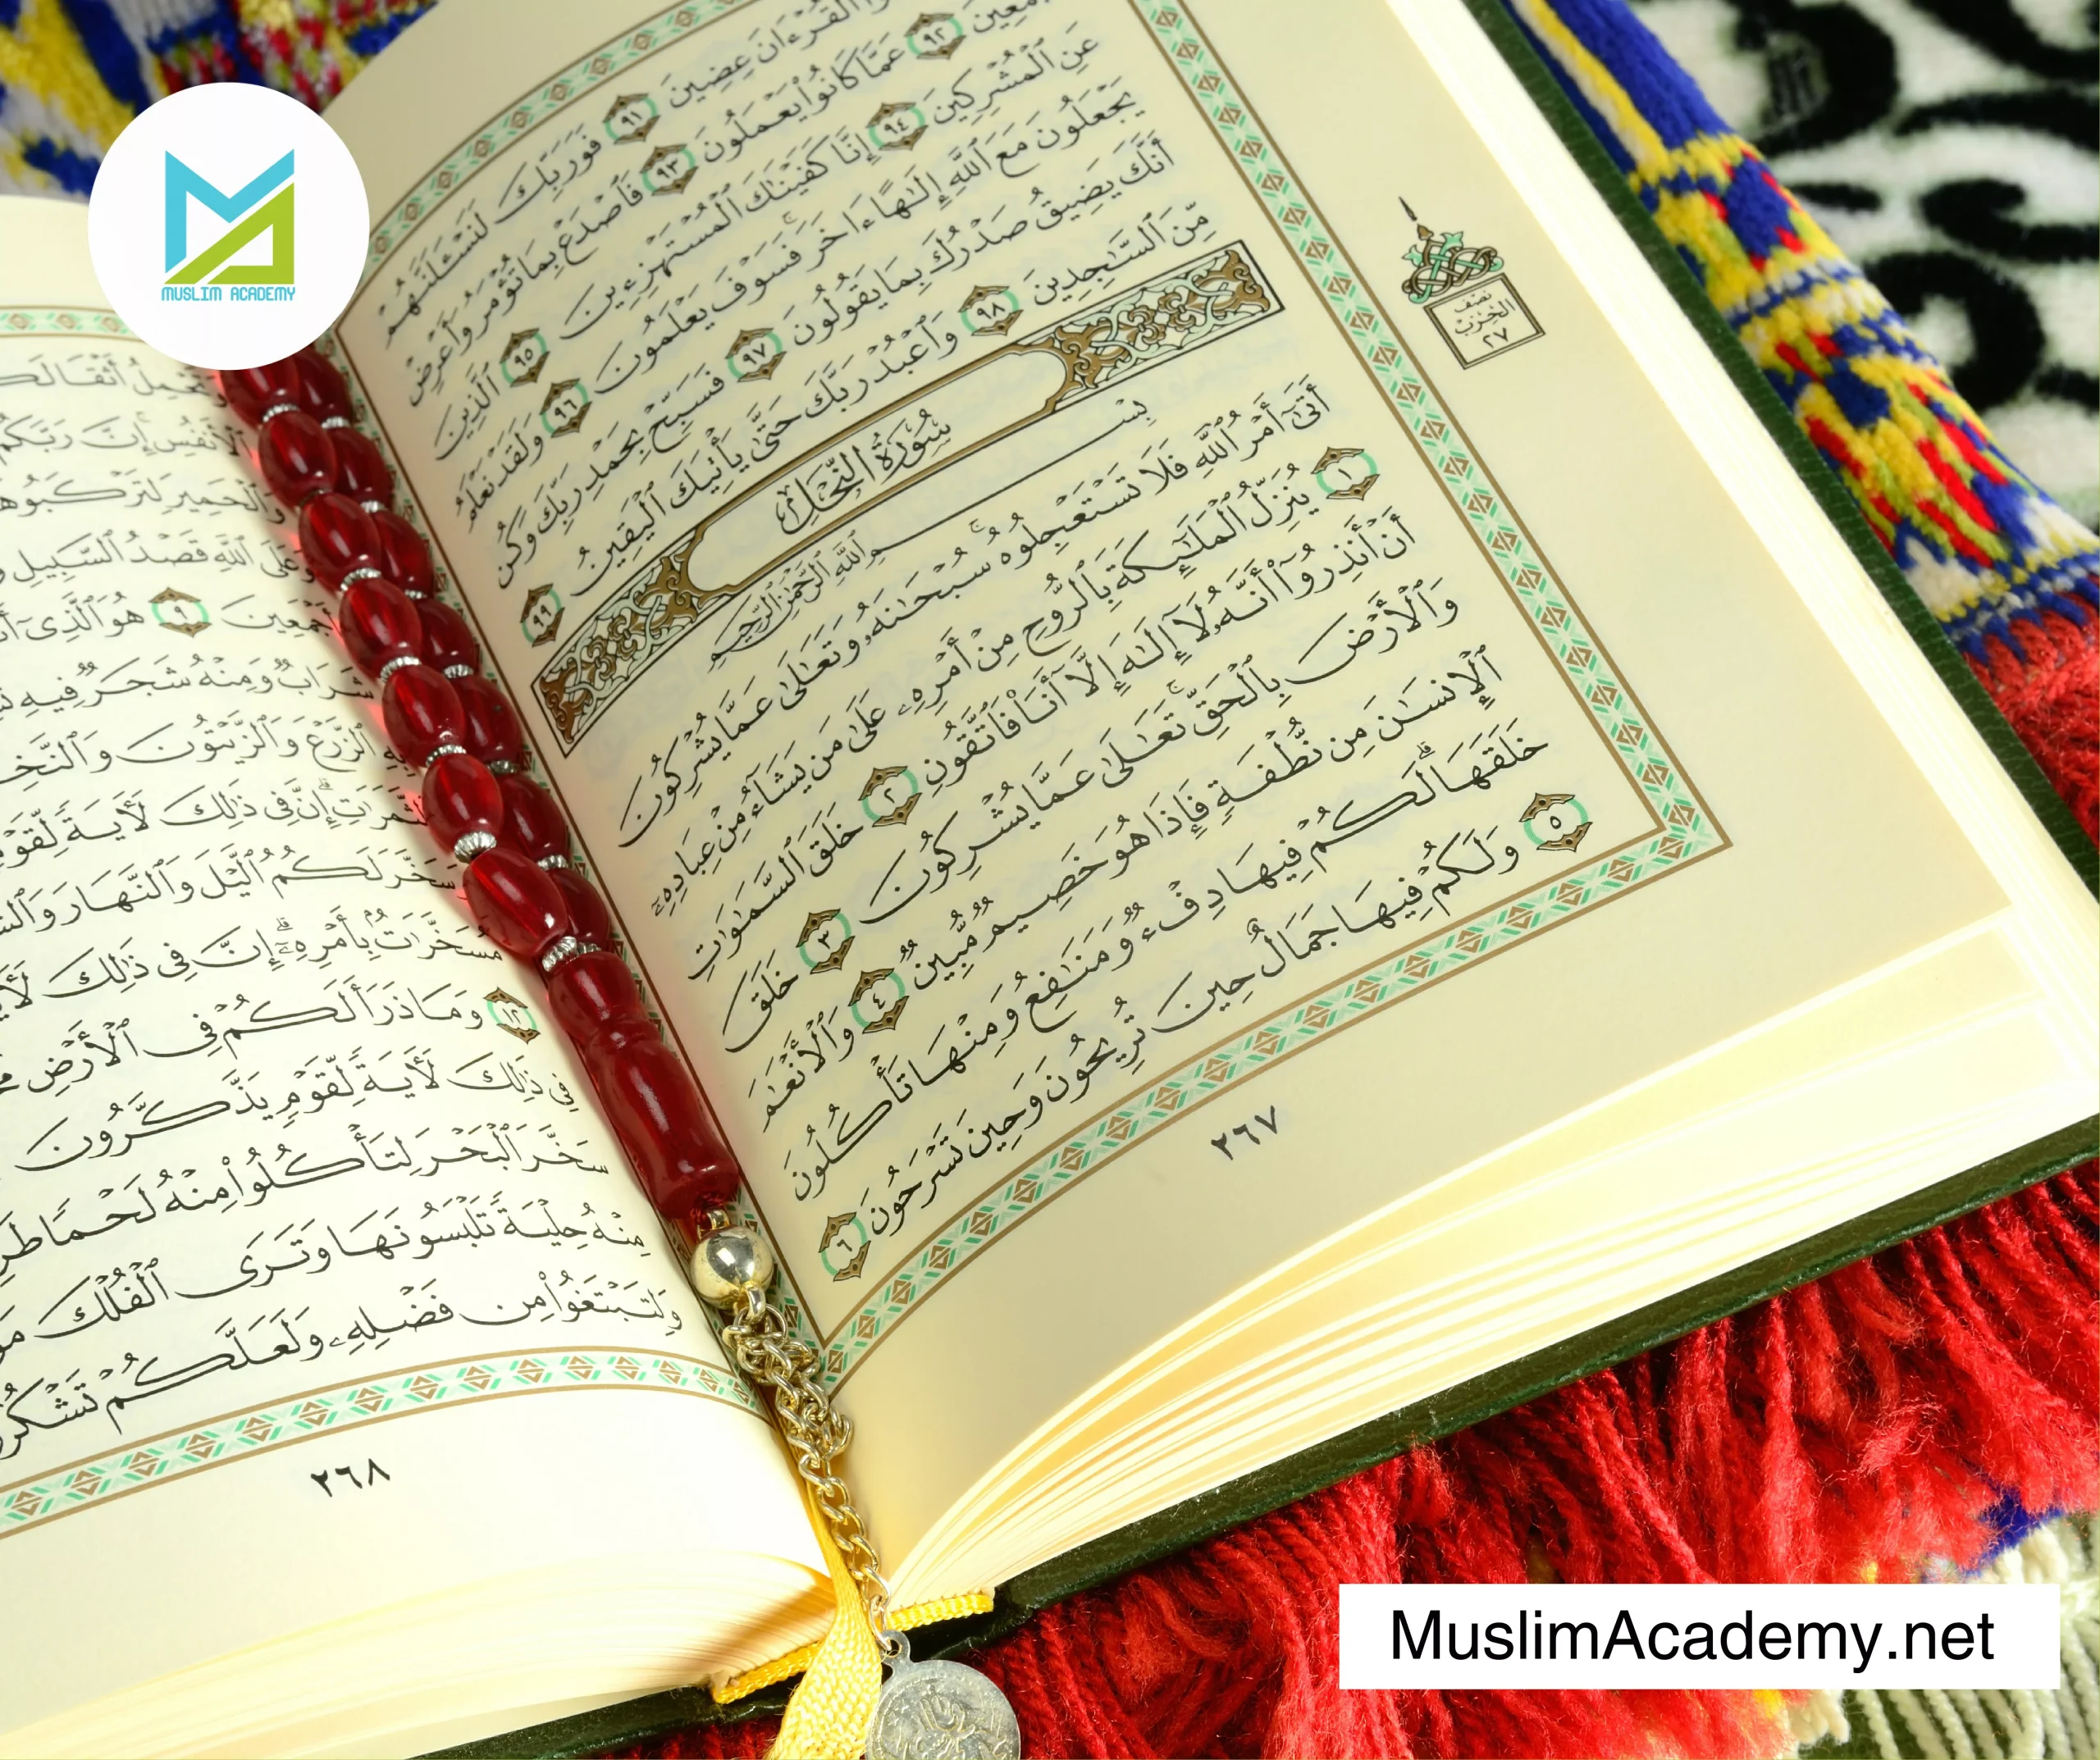 MUSLIM ACADEMY
ٱلْقُرْءَانَ عِضِينَ ٩١ فَوَرَبِّكَ لَنَسْـَٔلَنَّهُمْ
أَجْمَعِينَ ٩٢ عَمَّا كَانُوا۟ يَعْمَلُونَ ٩٣ فَٱصْدَعْ بِمَا تُؤْمَرُ وَأَعْرِضْ
عَنِ ٱلْمُشْرِكِينَ ٩٤ إِنَّا كَفَيْنَٰكَ ٱلْمُسْتَهْزِءِينَ ٩٥ ٱلَّذِينَ
يَجْعَلُونَ مَعَ ٱللَّهِ إِلَٰهًا ءَاخَرَ ۚ فَسَوْفَ يَعْلَمُونَ ٩٦ وَلَقَدْ نَعْلَمُ
أَنَّكَ يَضِيقُ صَدْرُكَ بِمَا يَقُولُونَ ٩٧ فَسَبِّحْ بِحَمْدِ رَبِّكَ وَكُن
مِّنَ ٱلسَّٰجِدِينَ ٩٨ وَٱعْبُدْ رَبَّكَ حَتَّىٰ يَأْتِيَكَ ٱلْيَقِينُ ٩٩
سُورَةُ النَّحْلِ
بِسْمِ ٱللَّهِ ٱلرَّحْمَٰنِ ٱلرَّحِيمِ
أَتَىٰٓ أَمْرُ ٱللَّهِ فَلَا تَسْتَعْجِلُوهُ ۚ سُبْحَٰنَهُۥ وَتَعَٰلَىٰ عَمَّا يُشْرِكُونَ
١ يُنَزِّلُ ٱلْمَلَٰٓئِكَةَ بِٱلرُّوحِ مِنْ أَمْرِهِۦ عَلَىٰ مَن يَشَآءُ مِنْ عِبَادِهِۦٓ
أَنْ أَنذِرُوٓا۟ أَنَّهُۥ لَآ إِلَٰهَ إِلَّآ أَنَا۠ فَٱتَّقُونِ ٢ خَلَقَ ٱلسَّمَٰوَٰتِ
وَٱلْأَرْضَ بِٱلْحَقِّ ۚ تَعَٰلَىٰ عَمَّا يُشْرِكُونَ ٣ خَلَقَ
ٱلْإِنسَٰنَ مِن نُّطْفَةٍ فَإِذَا هُوَ خَصِيمٌ مُّبِينٌ ٤ وَٱلْأَنْعَٰمَ
خَلَقَهَا ۗ لَكُمْ فِيهَا دِفْءٌ وَمَنَٰفِعُ وَمِنْهَا تَأْكُلُونَ
٥ وَلَكُمْ فِيهَا جَمَالٌ حِينَ تُرِيحُونَ وَحِينَ تَسْرَحُونَ ٦
٢٦٧
نصف
الحزب
٢٧
وَتَحْمِلُ أَثْقَالَكُمْ
ٱلْأَنفُسِ ۚ إِنَّ رَبَّكُمْ
وَٱلْحَمِيرَ لِتَرْكَبُوهَا
وَعَلَى ٱللَّهِ قَصْدُ ٱلسَّبِيلِ
أَجْمَعِينَ ٩ هُوَ ٱلَّذِىٓ
شَرَابٌ وَمِنْهُ شَجَرٌ فِيهِ
بِهِ ٱلزَّرْعَ وَٱلزَّيْتُونَ وَٱلنَّخِيلَ
ٱلثَّمَرَٰتِ ۗ إِنَّ فِى ذَٰلِكَ لَءَايَةً لِّقَوْمٍ
وَسَخَّرَ لَكُمُ ٱلَّيْلَ وَٱلنَّهَارَ
مُسَخَّرَٰتٌۢ بِأَمْرِهِۦٓ ۗ إِنَّ فِى ذَٰلِكَ
١٢ وَمَا ذَرَأَ لَكُمْ فِى ٱلْأَرْضِ
فِى ذَٰلِكَ لَءَايَةً لِّقَوْمٍ يَذَّكَّرُونَ
سَخَّرَ ٱلْبَحْرَ لِتَأْكُلُوا۟ مِنْهُ لَحْمًا
مِنْهُ حِلْيَةً تَلْبَسُونَهَا وَتَرَى ٱلْفُلْكَ
وَلِتَبْتَغُوا۟ مِن فَضْلِهِۦ وَلَعَلَّكُمْ تَشْكُرُونَ
٢٦٨
MuslimAcademy.net